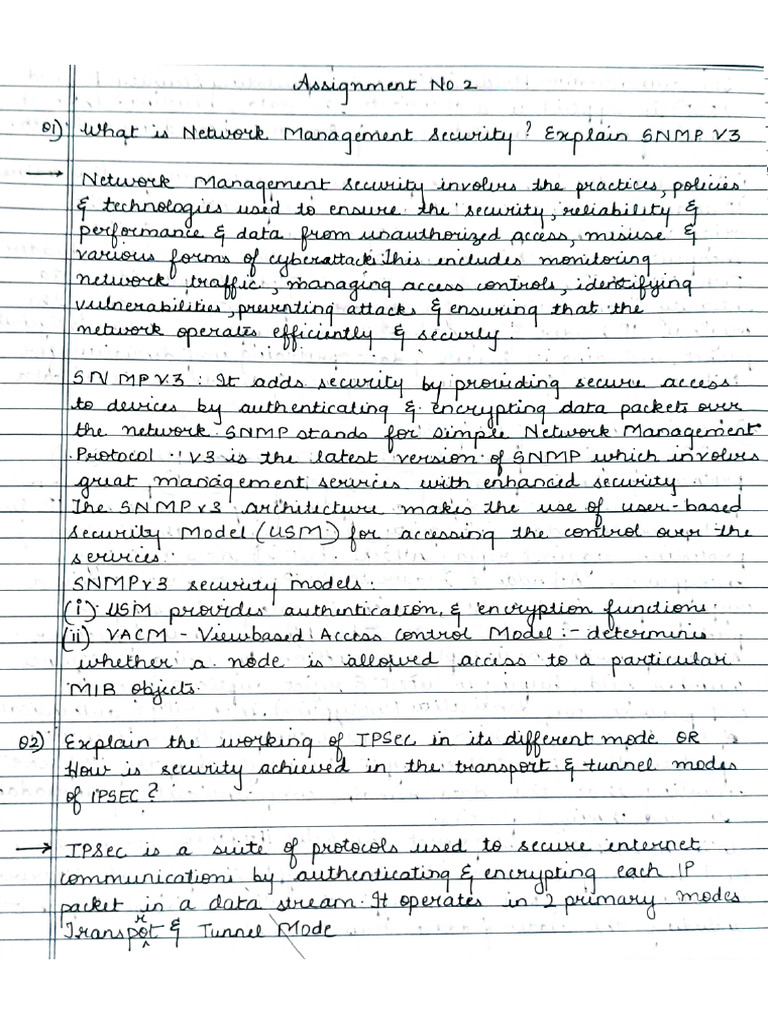 Assignment No 2
Q1) What is Network Management Security? Explain SNMP V3
→ Network Management Security involves the practices, policies
& technologies used to ensure the security, reliability &
performance & data from unauthorized access, misuse &
various forms of cyberattacks. This includes monitoring
network traffic, managing access controls, identifying
vulnerabilities, preventing attacks & ensuring that the
network operates efficiently & securly.
SNMPV3: It adds security by providing secure access
to devices by authenticating & encrypting data packets over
the network. SNMP stands for Simple Network Management
Protocol. V3 is the latest version of SNMP which involves
great management services with enhanced security.
The SNMPv3 architecture makes the use of user-based
Security Model (USM) for accessing the control over the
services.
SNMPv3 security models:
(i) USM provides authentication & encryption functions.
(ii) VACM - Viewbased Access Control Model :- determines
whether a node is allowed access to a particular
MIB objects.
Q2) Explain the working of IPSec in its different mode OR
How is security achieved in the transport & tunnel modes
of IPSEC?
→ IPSec is a suite of protocols used to secure internet
communications by authenticating & encrypting each IP
packet in a data stream. It operates in 2 primary modes
Transport & Tunnel Mode